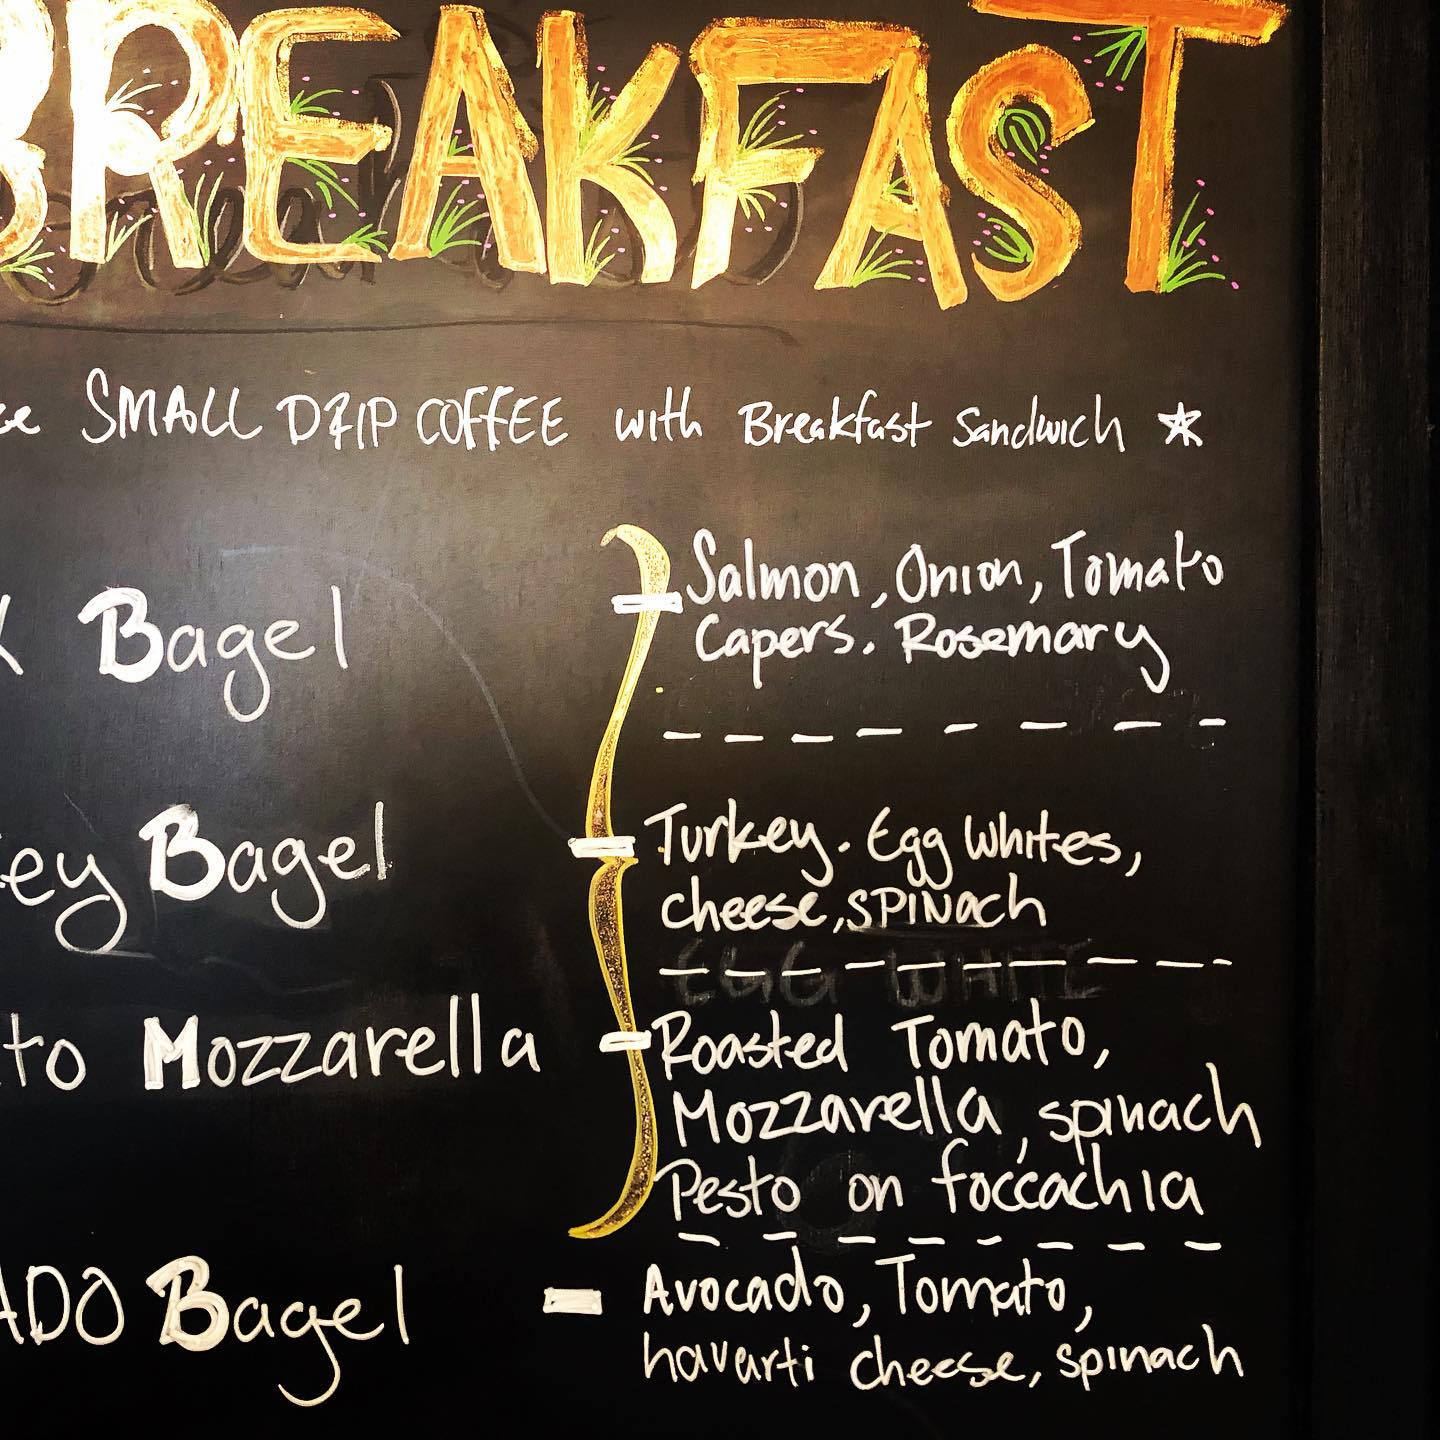 BREAKFAST
SMALL DRIP COFFEE with Breakfast Sandwich
Bagel
Salmon, Onion, Tomato
Capers. Rosemary
ey Bagel
Turkey. Egg Whites,
cheese, SPINach
EGG WHITE
to Mozzarella
Roasted Tomato,
Mozzarella, spinach
Pesto on foccachia
ADO Bagel
Avocado, Tomato,
havarti cheese, spinach